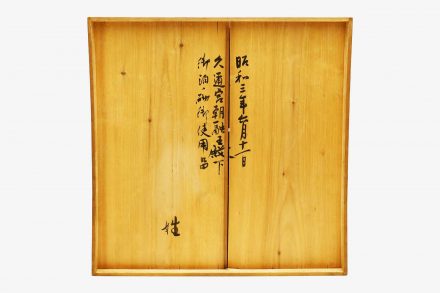 昭和三年六月十一日
久邇宮朝融王殿下
御泊ノ砌御使用品
姓